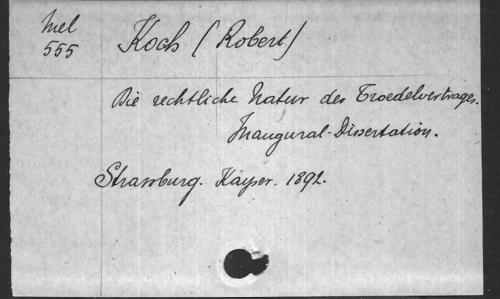 Mel
555
Koch (Robert)
Die rechtliche Natur des Troedelvertrages.
Inaugural-Dissertation.
Strassburg. Kayser. 1892.